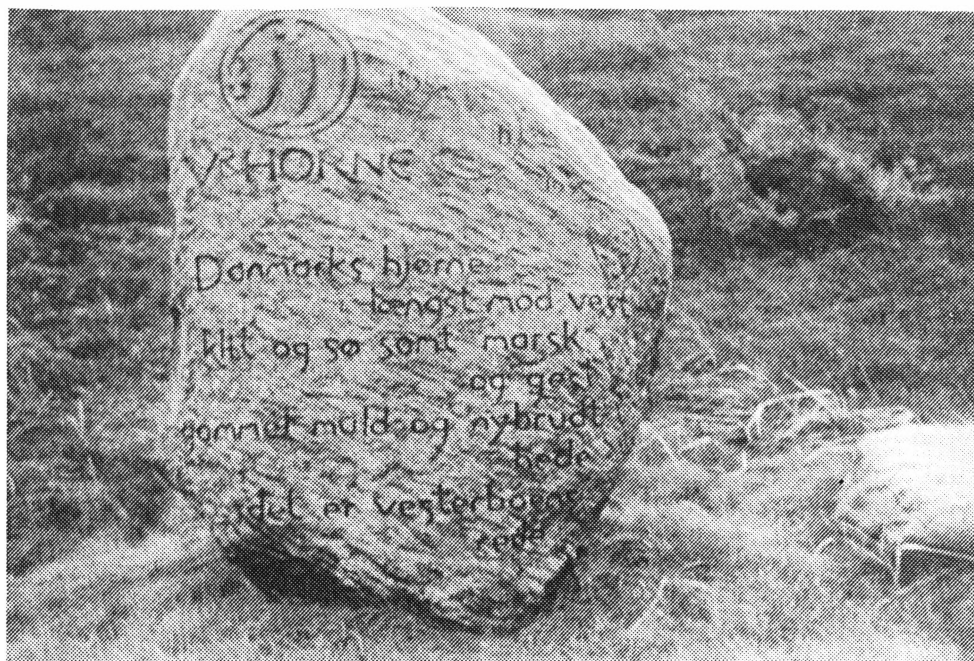 VRHORNE
Danmarks hjørne
længst mod vest
klit og sø samt marsk
og gest
gammel muld og nybrudt
hede
det er vesterboens
rede